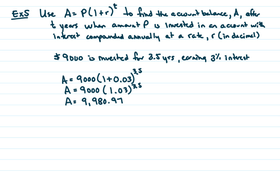 Ex5 Use A = P(1+r)^t to find the account balance, A, after
t years when amount P is invested in an account with
interest compounded annually at a rate, r (in decimal)
$9000 is invested for 3.5 yrs, earning 3% interest
A = 9000(1+0.03)^3.5
A = 9000(1.03)^3.5
A = 9,980.97